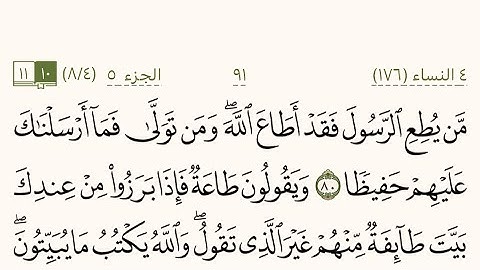 ٤ النساء (١٧٦) ٩١ الجزء ٥ (٨/٤) ١٠ ١١
مَّن يُطِعِ ٱلرَّسُولَ فَقَدْ أَطَاعَ ٱللَّهَۖ وَمَن تَوَلَّىٰ فَمَآ أَرْسَلْنَٰكَ
عَلَيْهِمْ حَفِيظًا ٨٠ وَيَقُولُونَ طَاعَةٌ فَإِذَا بَرَزُوا۟ مِنْ عِندِكَ
بَيَّتَ طَآئِفَةٌ مِّنْهُمْ غَيْرَ ٱلَّذِى تَقُولُۖ وَٱللَّهُ يَكْتُبُ مَا يُبَيِّتُونَۖ